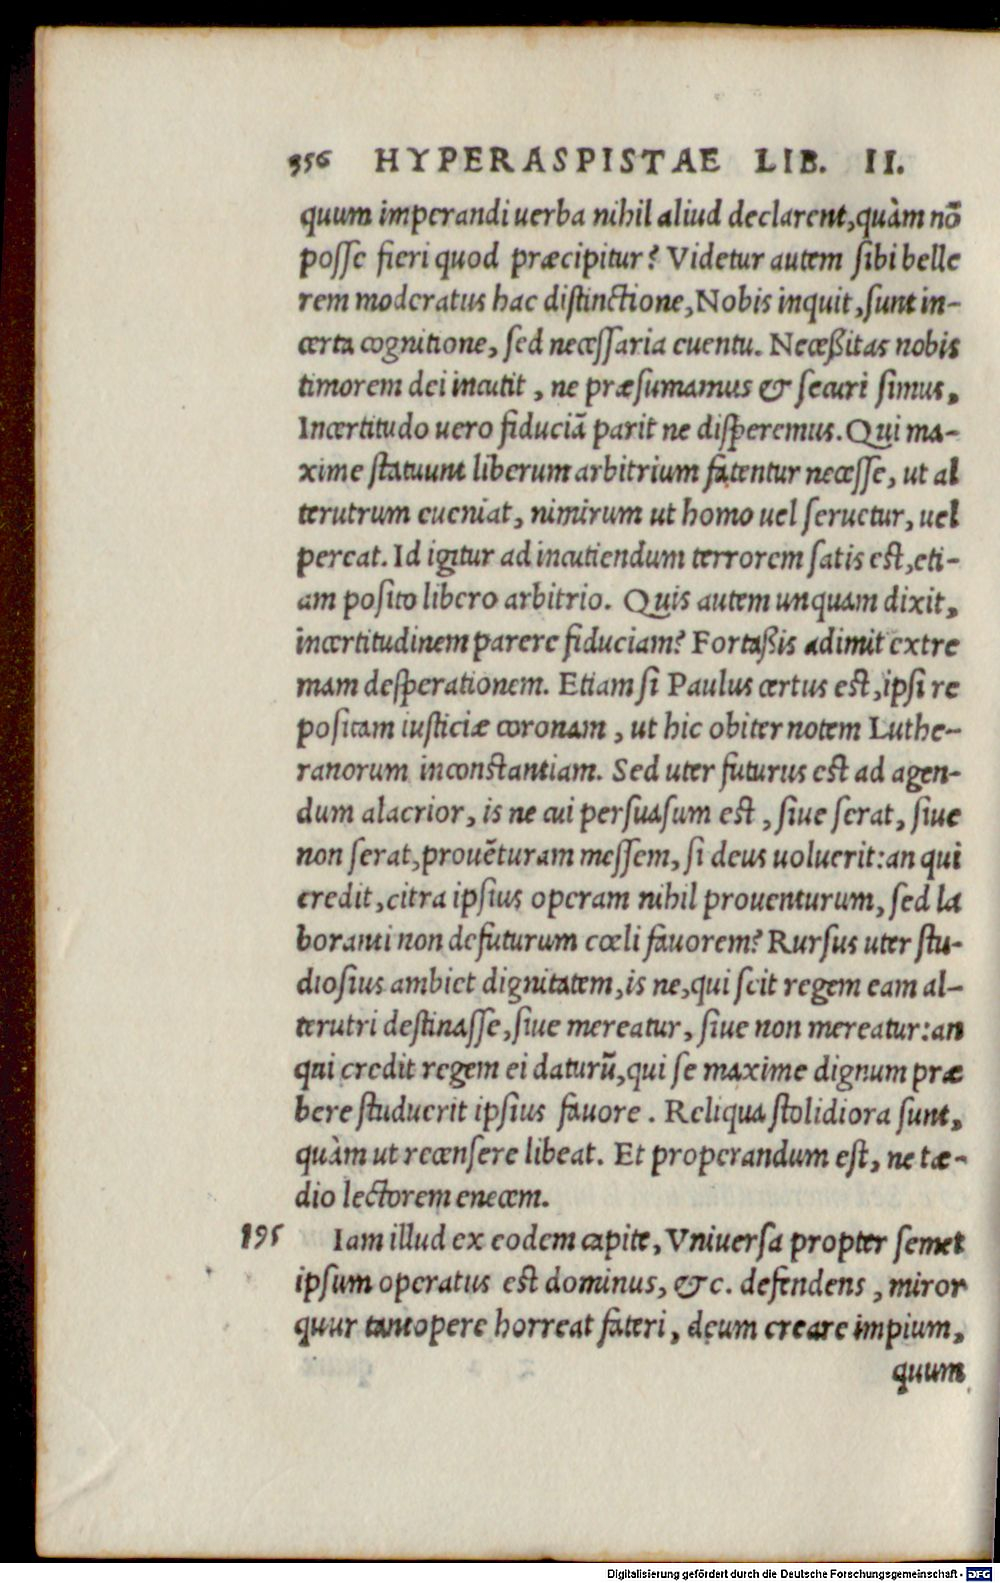 356 HYPERASPISTAE LIB. II.
quum imperandi uerba nihil aliud declarent, quàm nõ
posse fieri quod præcipitur? Videtur autem sibi belle
rem moderatus hac distinctione, Nobis inquit, sunt in-
certa cognitione, sed necessaria euentu. Neceßitas nobis
timorem dei incutit, ne præsumamus & securi simus,
Incertitudo uero fiduciã parit ne disperemus. Qui ma-
xime statuunt liberum arbitrium fatentur necesse, ut al
terutrum eueniat, nimirum ut homo uel seruetur, uel
pereat. Id igitur ad incutiendum terrorem satis est, eti-
am posito libero arbitrio. Quis autem unquam dixit,
incertitudinem parere fiduciam? Fortaßis adimit extre
mam desperationem. Etiam si Paulus certus est, ipsi re
positam iusticiæ coronam, ut hic obiter notem Luthe-
ranorum inconstantiam. Sed uter futurus est ad agen-
dum alacrior, is ne cui persuasum est, siue serat, siue
non serat, prouẽturam messem, si deus uoluerit: an qui
credit, citra ipsius operam nihil prouenturum, sed la
boranti non defuturum cœli fauorem? Rursus uter stu-
diosius ambiet dignitatem, is ne, qui scit regem eam al-
terutri destinasse, siue mereatur, siue non mereatur: an
qui credit regem ei daturũ, qui se maxime dignum præ
bere studuerit ipsius fauore. Reliqua stolidiora sunt,
quàm ut recensere libeat. Et properandum est, ne tæ-
dio lectorem enecem.
195 Iam illud ex eodem capite, Vniuersa propter semet
ipsum operatus est dominus, &c. defendens, miror
quur tantopere horreat fateri, deum creare impium,
quum
Digitalisierung gefördert durch die Deutsche Forschungsgemeinschaft - DFG